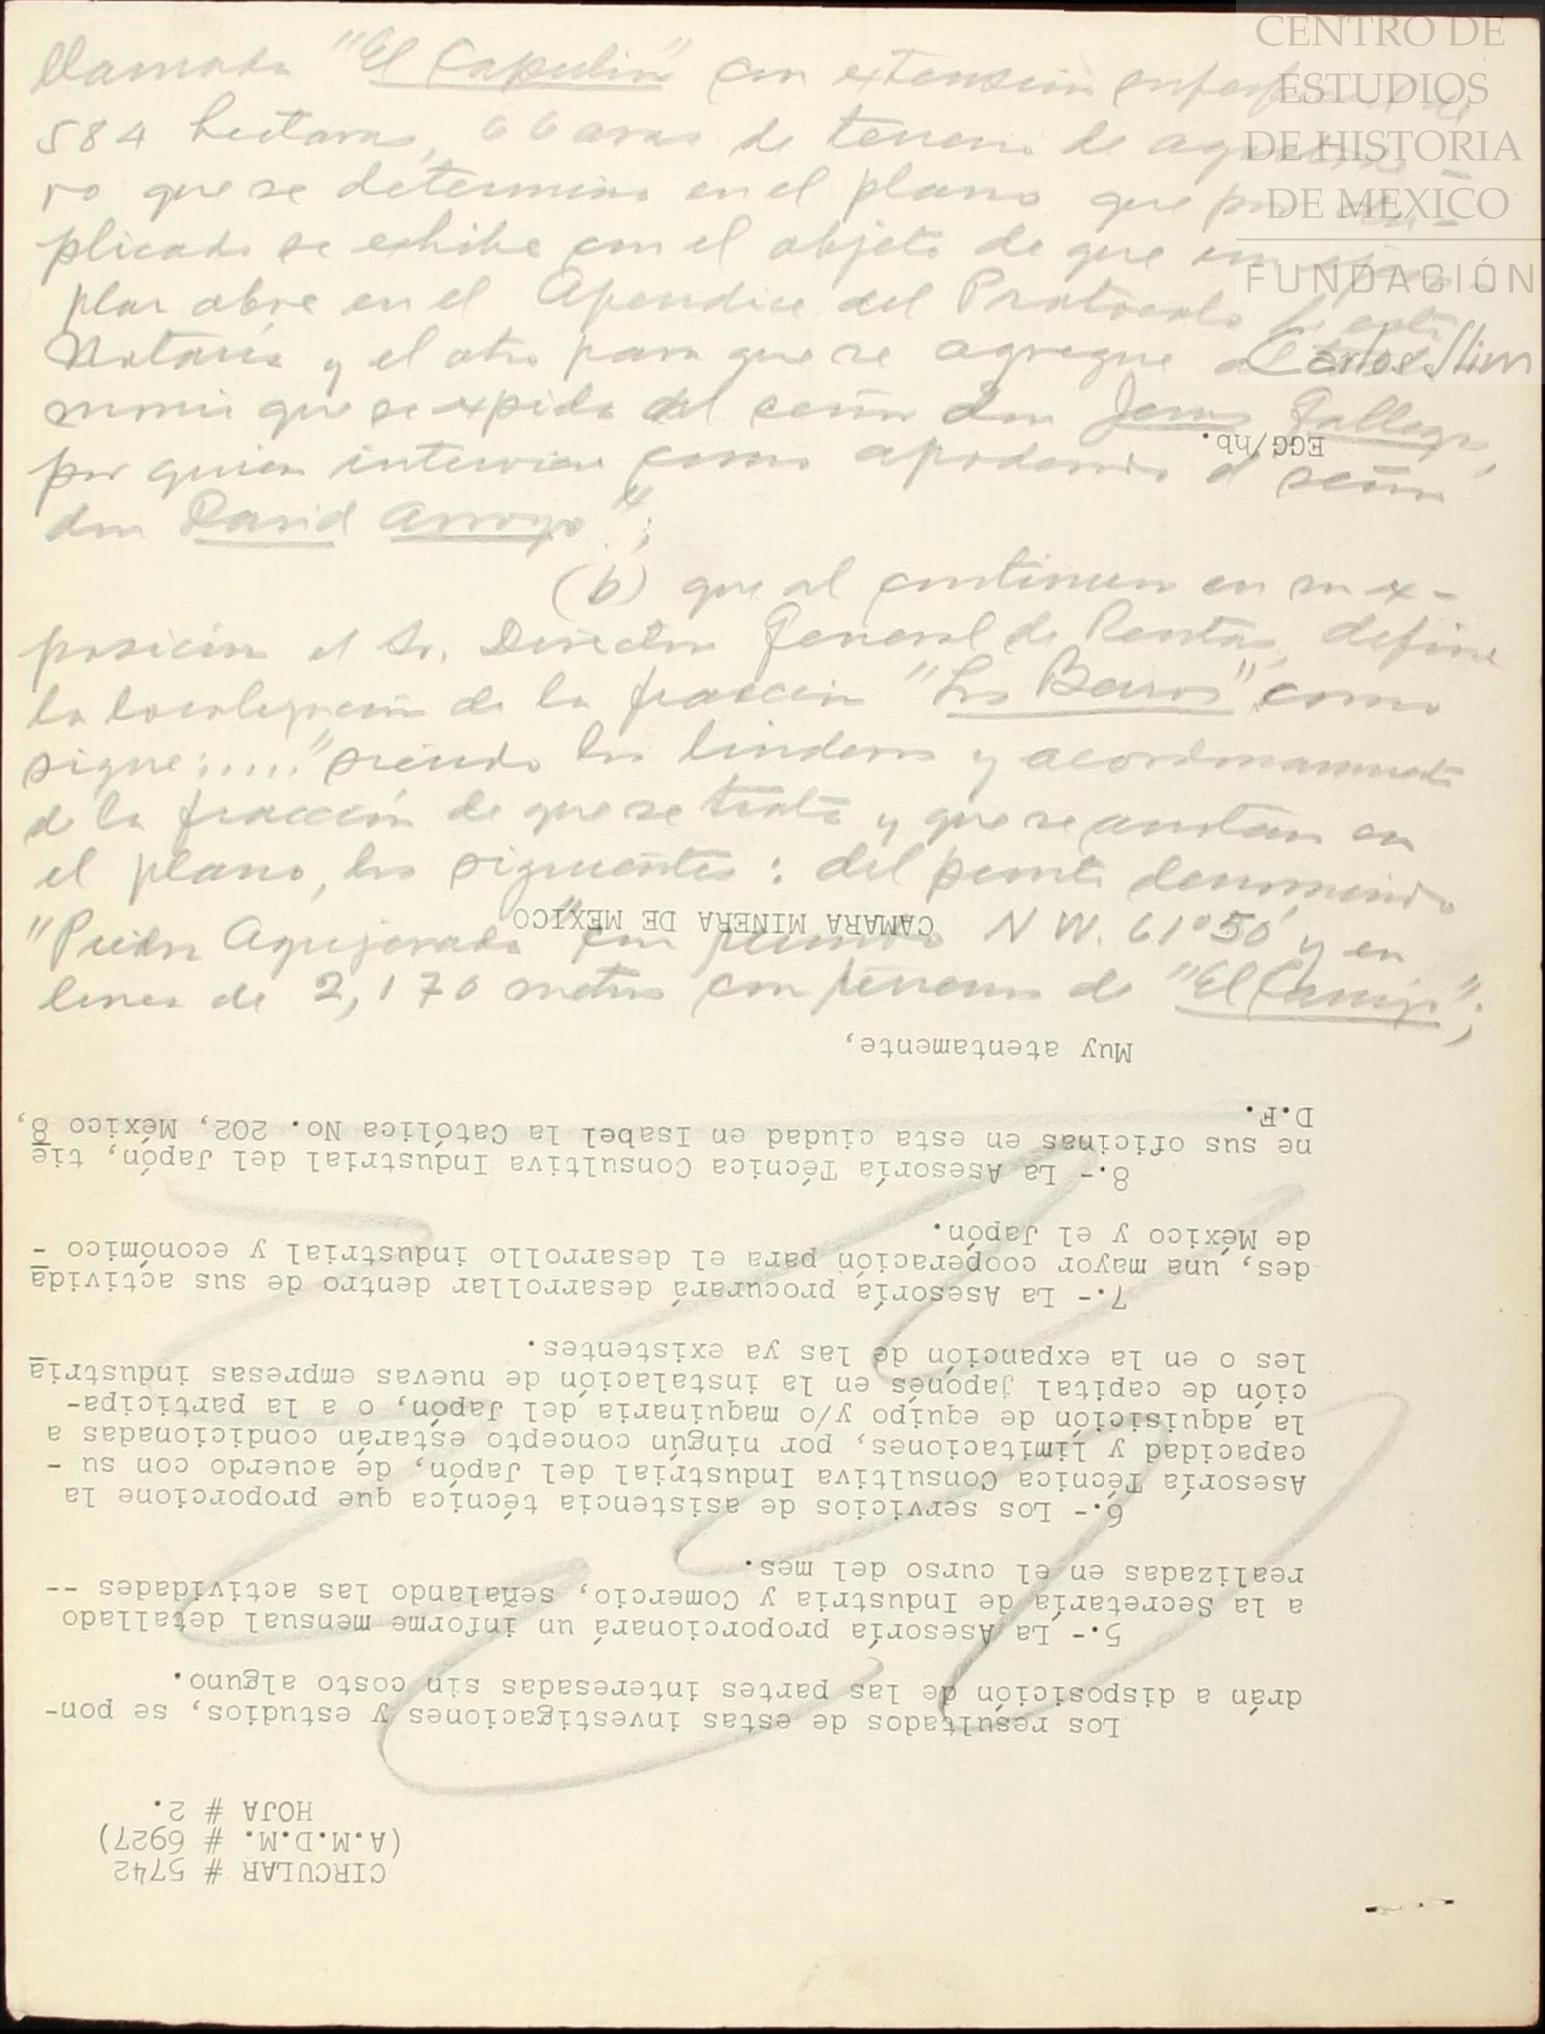 llamada "El Capulin" con extensión superficial de
584 hectaras, 66 aras de terreno de agostade-
ro que se determina en el plano que por du-
plicado se exhibe con el objeto de que un ejem-
plar obre en el Apendice del Protocolo de esta
Notaría y el otro para que se agregue al
que se expida del señor don Jesus Gallego,
por quien interviene como apoderado el señor
don David Arroyo";
(b) que al continuar en su ex-
posición el Sr. Director General de Rentas, define
la localización de la fracción "Los Barros" como
sigue:....."siendo los linderos y acordonamiento
de la fracción de que se trata y que se anotan en
el plano, los siguientes: del punto denominado
"Piedra Agujerada" con rumbo N W. 61°50' y en
linea de 2,170 metros con terrenos de "El Carrizo";
CENTRO DE
ESTUDIOS
DE HISTORIA
DE MEXICO
FUNDACIÓN
Carlos Slim
CIRCULAR # 5742
(A.M.D.M. # 6927)
HOJA # 2.
Los resultados de estas investigaciones y estudios, se pon-
drán a disposición de las partes interesadas sin costo alguno.
5.- La Asesoría proporcionará un informe mensual detallado
a la Secretaría de Industria y Comercio, señalando las actividades --
realizadas en el curso del mes.
6.- Los servicios de asistencia técnica que proporcione la
Asesoría Técnica Consultiva Industrial del Japón, de acuerdo con su -
capacidad y limitaciones, por ningún concepto estarán condicionadas a
la adquisición de equipo y/o maquinaria del Japón, o a la participa-
ción de capital japonés en la instalación de nuevas empresas industria
les o en la expanción de las ya existentes.
7.- La Asesoría procurará desarrollar dentro de sus activida
des, una mayor cooperación para el desarrollo industrial y económico -
de México y el Japón.
8.- La Asesoría Técnica Consultiva Industrial del Japón, tie
ne sus oficinas en esta ciudad en Isabel la Católica No. 202, México 8,
D.F.
Muy atentamente,
CAMARA MINERA DE MEXICO
EGG/hb.